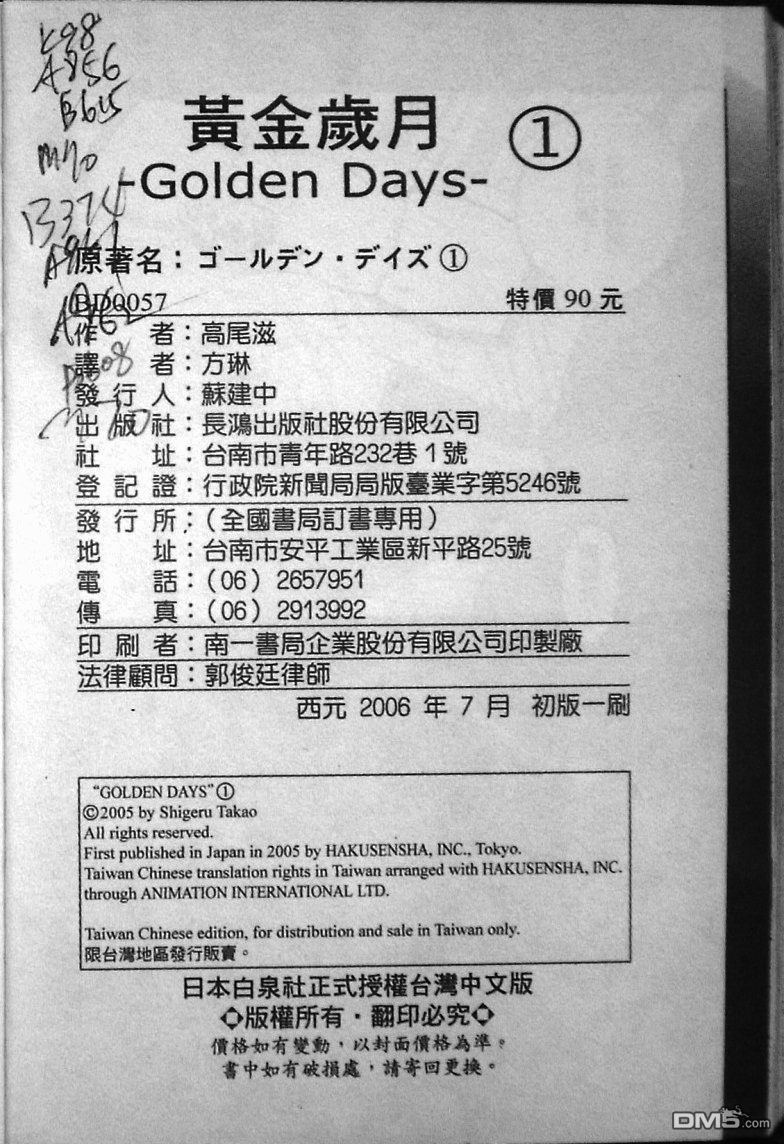 K98
A856
B615
M70
B374
黃金歲月 ①
-Golden Days-
原著名：ゴールデン・デイズ ①
BD0057 特價 90 元
作者：高尾滋
譯者：方琳
發行人：蘇建中
出版社：長鴻出版社股份有限公司
社址：台南市青年路232巷 1 號
登記證：行政院新聞局局版臺業字第5246號
發行所：（全國書局訂書專用）
地址：台南市安平工業區新平路25號
電話：（06）2657951
傳真：（06）2913992
印刷者：南一書局企業股份有限公司印製廠
法律顧問：郭俊廷律師
西元 2006 年 7 月 初版一刷
“GOLDEN DAYS”①
©2005 by Shigeru Takao
All rights reserved.
First published in Japan in 2005 by HAKUSENSHA, INC., Tokyo.
Taiwan Chinese translation rights in Taiwan arranged with HAKUSENSHA, INC.
through ANIMATION INTERNATIONAL LTD.
Taiwan Chinese edition, for distribution and sale in Taiwan only.
限台灣地區發行販賣。
日本白泉社正式授權台灣中文版
◇版權所有・翻印必究◇
價格如有變動，以封面價格為準。
書中如有破損處，請寄回更換。
DM5.com